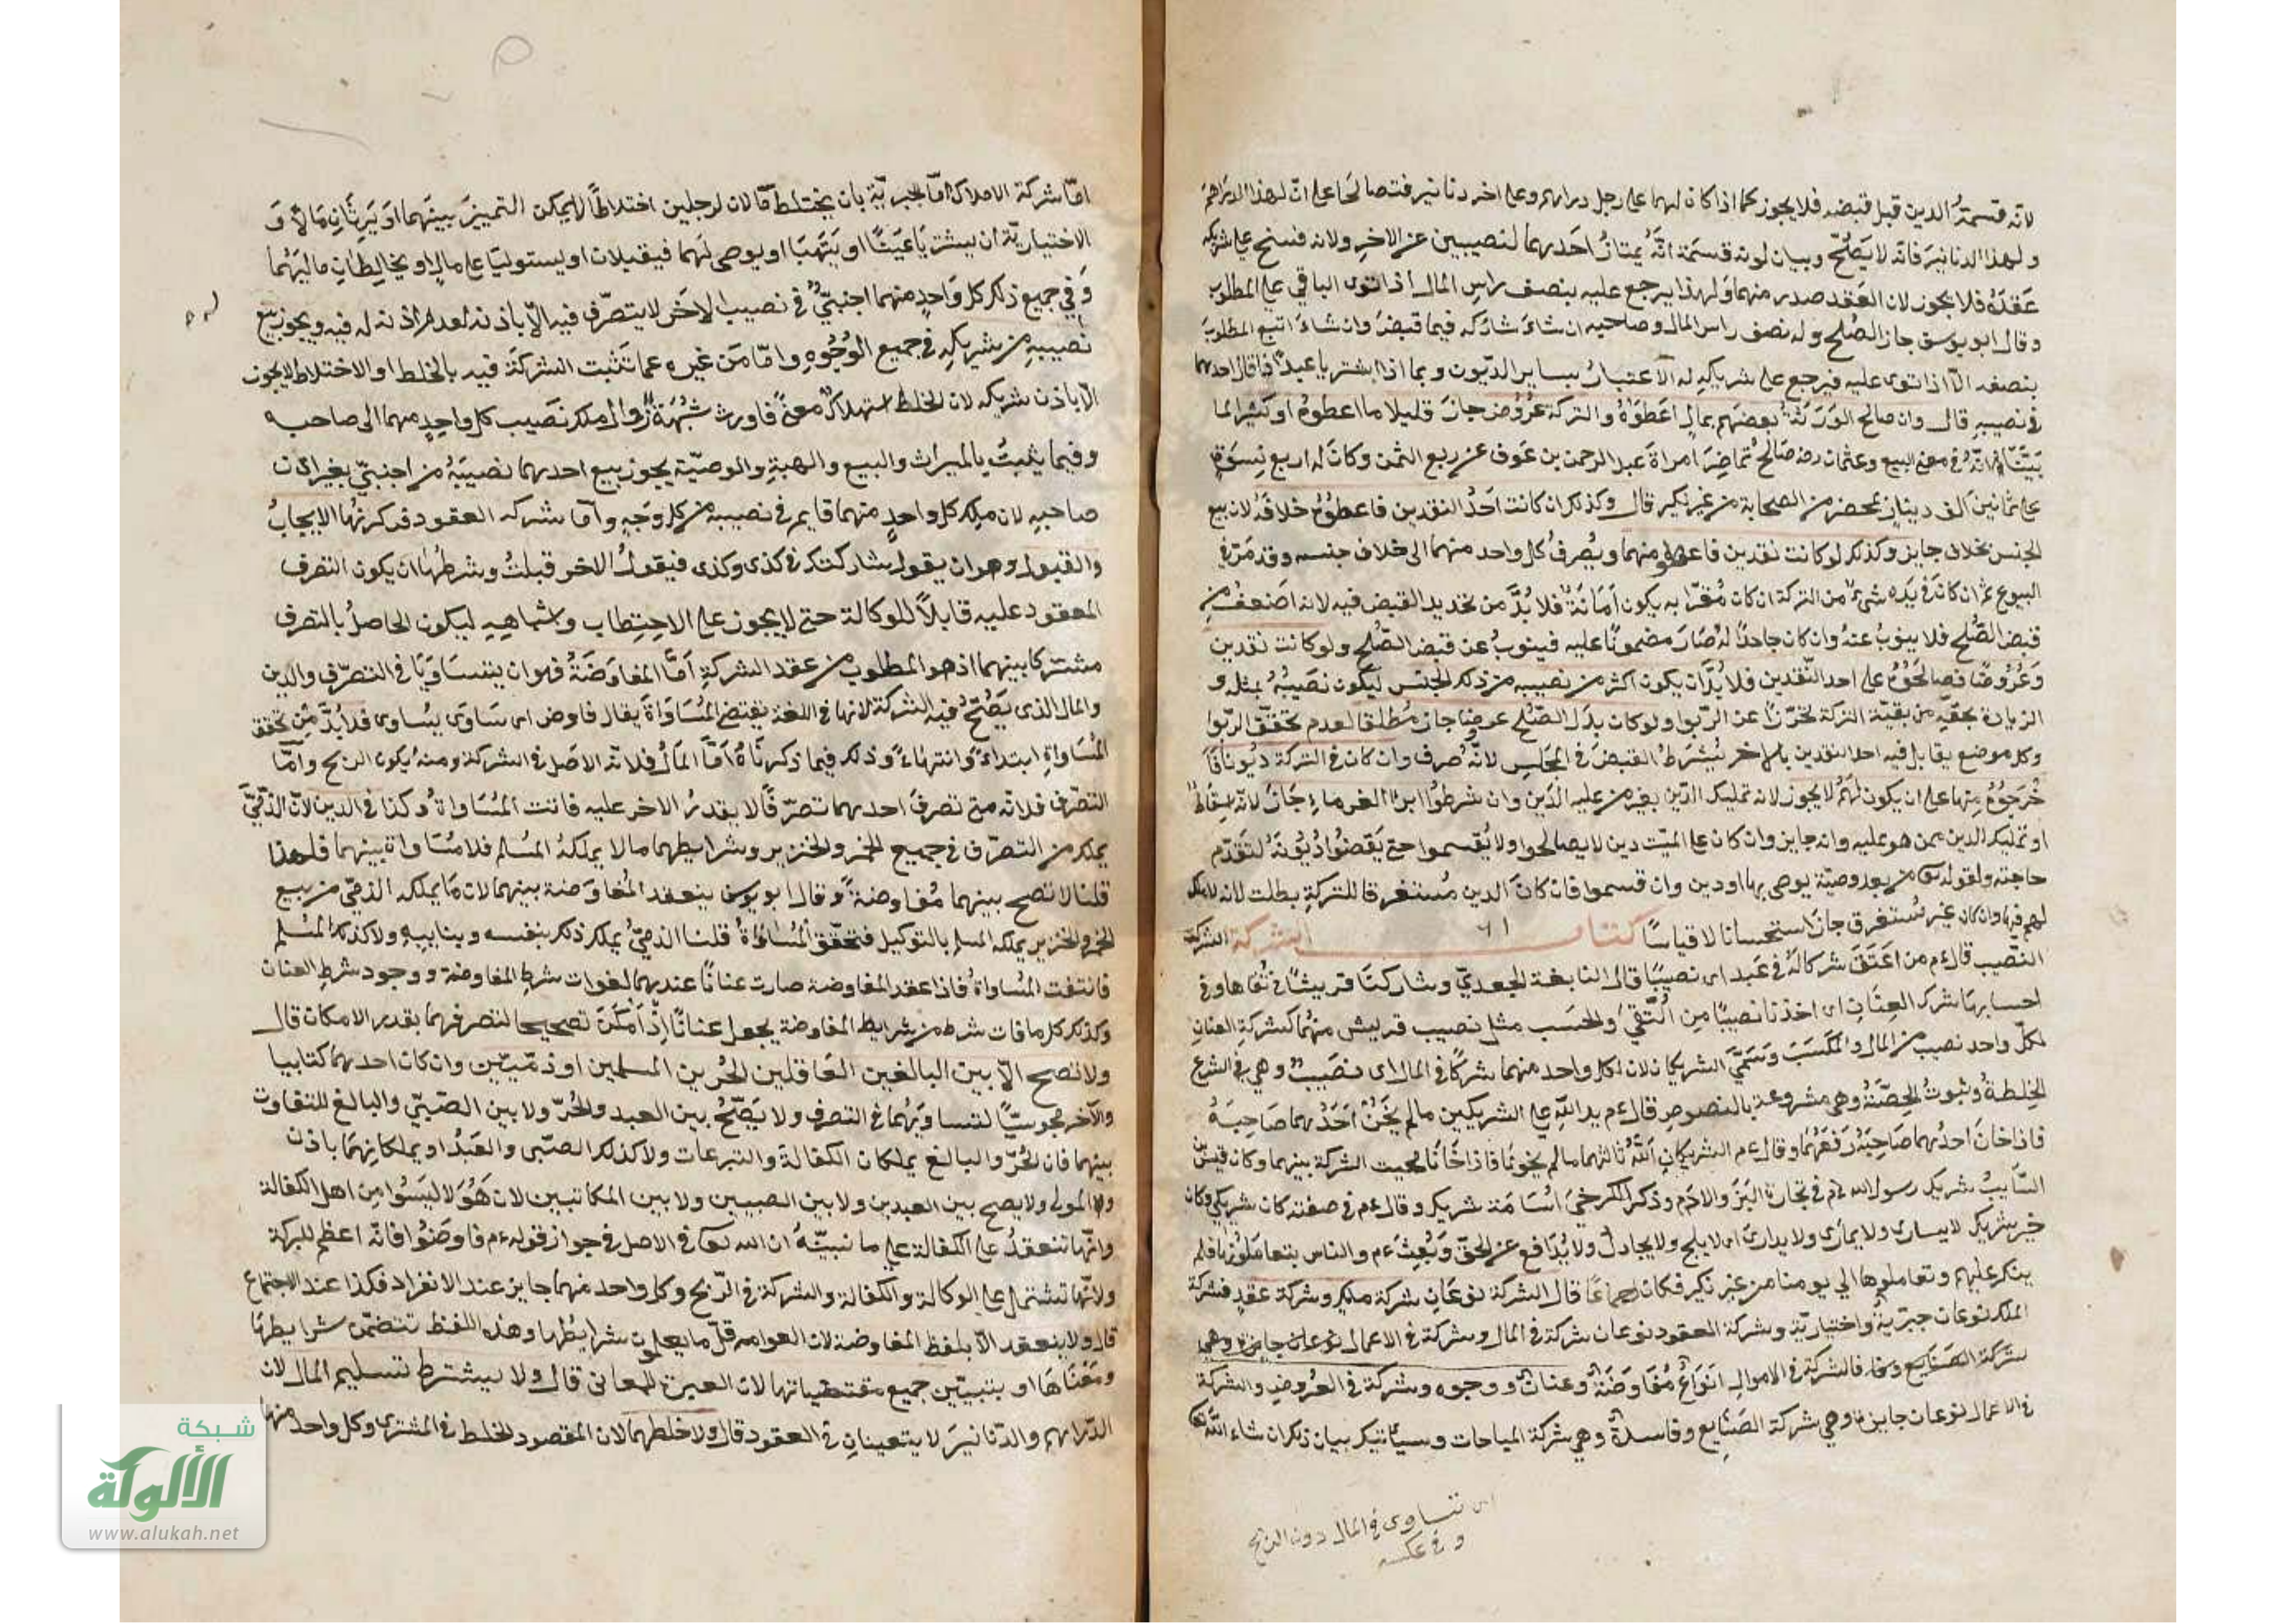 لانه قسمة الدين قبل قبضه فلا يجوز كما اذا كان لهما على رجل دراهم وعلى اخر دنانير فتصالحا على ان لهذا الدراهم
ولهذا الدنانير فانه لا يصح وبيان لونه قسمة انه يمتاز احدهما لنصيبين عن الاخر ولانه فسخ على شريكه
عقده فلا يجوز لان العقد صدر منهما ولهذا يرجع عليه بنصف راس المال اذا توى الباقي على المطلوب
وقال ابو يوسف جاز الصلح وله نصف راس المال وصاحبه ان شاء شاركه فيما قبض وان شاء اتبع المطلوب
بنصفه الا اذا توى عليه فيرجع على شريكه له الاعتبار بساير الديون وبما اذا اشتريا عبدا فاقال احدهما
في نصيبه قال وان صالح الورثة بعضهم بمال اعطوه والتركة عروض جاز قليلا ما اعطوه او كثيرا لما
بينا انه في معنى البيع وعثمان رضه صالح تماضر امراة عبد الرحمن بن عوف عن ربع الثمن وكان له اربع نسوة
على ثمانين الف دينار بمحضر من الصحابة من غير نكير قال وكذلك ان كانت احد النقدين فاعطوه خلافه لان بيع
الجنس بخلاف جايز وكذلك لو كانت نقدين فاعطوه منهما ويصرف كل واحد منهما الى خلاف جنسه وقد مر في
البيوع ثم ان كان في يده شيء من التركة ان كان مقرا به يكون امانة فلا بد من تجديد القبض فيه لانه اضعف من
قبض الصلح فلا ينوب عنه وان كان جاحدا له صار مضمونا عليه فينوب عن قبض الصلح ولو كانت نقدين
وعروضا فصالحوه على احد النقدين فلا بد ان يكون اكثر من نصيبه من ذلك الجنس ليكون نصيبه بمثله و
الزيادة بحقه من بقية التركة تحرزا عن الربوا ولو كان بدل الصلح عرضا جاز مطلقا لعدم تحقق الربوا
وكل موضع يقابل فيه احد النقدين بالاخر يشترط القبض في المجلس لانه صرف وان كان في التركة ديونا فا
خرجوه منها على ان يكون لهم لا يجوز لانه تمليك الدين بغير من عليه الدين وان شرطوا ابراء الغرماء جاز لانه اسقاط
او تمليك الدين ممن هو عليه وانه جايز وان كان على الميت دين لا يصالحوا ولا يقسموا حتى يقضوا ديونه لتقدم
حاجته ولقوله تعالى من بعد وصية يوصى بها او دين وان قسموا فان كان الدين مستغرقا للتركة بطلت لانه لا ملك
لهم فيها وان كان غير مستغرق جاز استحسانا لا قياسا كتاب الشركة الشركة
النصيب قال ءم من اعتق شركا له في عبد اى نصيبا قال النابغة الجعدي وشاركنا قريشا في تقاها وفي
احسابها شرك العنان اى اخذنا نصيبا من التقى والحسب مثل نصيب قريش منهما كشركة العنان
لكل واحد نصيب من المال والمكسب وسمي الشريكان لان لكل واحد منهما شركا في المال اى نصيب وهي في الشرع
الخلطة وثبوت الحصة وهي مشروعة بالنصوص قال ءم يد الله على الشريكين ما لم يخن احدهما صاحبه
فاذا خان احدهما صاحبه رفعهما وقال ءم الشريكان الله ثالثهما ما لم يخونا فاذا خانا محيت الشركة بينهما وكان قيس بن
السايب شريك رسول الله ءم في تجارة البز والادم وذكر الكرخي اسامة شريك وقال ءم في صفته كان شريكي وكان
خير شريك لا يسارى ولا يمارى ولا يدارى اى لا يلج ولا يجادل ولا يدافع عن الحق وبعث ءم والناس يتعاملون بها فلم
ينكر عليهم وتعاملوها الى يومنا من غير نكير فكان اجماعا قال الشركة نوعان شركة ملك وشركة عقد فشركة
الملك نوعان جبرية واختيارية وشركة العقود نوعان شركة في المال وشركة في الاعمال نوعان جايزة وهي
شركة الصنايع فالشركة في الاموال انواع مفاوضة وعنان ووجوه وشركة في العروض والشركة
في الاعمال نوعان جايزة وهي شركة الصنايع وفاسدة وهي شركة المباحات وسياتيك بيان ذلك ان شاء الله تعالى
اى تساوى في المال دون الربح
وفي عكسه
اما شركة الاملاك اما الجبرية بان يختلط مالان لرجلين اختلاطا لا يمكن التمييز بينهما او يرثان مالا و
الاختيارية ان يشتريا عينا او يتهبا او يوصى لهما فيقبلان او يستوليا على مال او يخالطان ماليهما
وفي جميع ذلك كل واحد منهما اجنبي في نصيب الاخر لا يتصرف فيه الا باذنه لعدم اذنه له فيه ويجوز بيع
نصيبه من شريكه في جميع الوجوه واما من غيره عما تثبت الشركة فيه بالخلط او الاختلاط لا يجوز
الا باذن شريكه لان الخلط استهلاك معنى فاورث شبهة زوال ملك نصيب كل واحد منهما الى صاحبه
وفيما يثبت بالميراث والبيع والهبة والوصية يجوز بيع احدهما نصيبه من اجنبي بغير اذن
صاحبه لان ملك كل واحد منهما قايم في نصيبه من كل وجه واما شركه العقود فركنها الايجاب
والقبول وهو ان يقول شاركتك في كذى وكذى فيقول الاخر قبلت وشرطها ان يكون التصرف
المعقود عليه قابلا للوكالة حتى لا يجوز على الاحتطاب واشباهه ليكون الحاصل بالتصرف
مشتركا بينهما اذ هو المطلوب من عقد الشركة اما المفاوضة فهو ان يتساويا في التصرف والدين
والمال الذى يصح فيه الشركة لانها في اللغة يقتضي المساواة يقال فاوض اى ساوى يساوى فلا بد من تحقق
المساواة ابتداء وانتهاء وذلك فيما ذكرناه اما المال فلانه الاصل في الشركة ومنه يكون الربح واما
التصرف فلانه متى تصرف احدهما تصرفا لا يقدر الاخر عليه فاتت المساواة وكذا في الدين لان الذمي
يملك من التصرف في جميع الخمر والخنزير وشرايطهما ما لا يملكه المسلم فلا مساواة بينهما فلهذا
قلنا لا تصح بينهما مفاوضة وقال ابو يوسف ينعقد المفاوضة بينهما لان ما يملكه الذمي من بيع
الخمر والخنزير يملكه المسلم بالتوكيل فتحقق المساواة قلنا الذمي يملك ذلك بنفسه وبنايبه ولا كذلك المسلم
فانتفت المساواة فاذا عقد المفاوضة صارت عنانا عندهما لفوات شرط المفاوضة ووجود شرط العنان
وكذلك كل ما فات شرط من شرايط المفاوضة يجعل عنانا اذا امكن تصحيحا لتصرفهما بقدر الامكان قال
ولا تصح الا بين البالغين العاقلين الحرين المسلمين او ذميين وان كان احدهما كتابيا
والآخر مجوسيا لتساويهما في التصرف ولا يصح بين العبد والحر ولا بين الصبي والبالغ للتفاوت
بينهما فان الحر والبالغ يملكان الكفالة والتبرعات ولا كذلك الصبى والعبد او يملكانهما باذن
المولى ولا يصح بين العبدين ولا بين الصبيين ولا بين المكاتبين لان هؤلا ليسوا من اهل الكفالة
وانها تنعقد على الكفالة على ما نبينه ان الله تعالى في الاصل في جواز قوله ءم فاوضوا فانه اعظم للبركة
ولانها تشتمل على الوكالة والكفالة والشركة في الربح وكل واحد منهما جايز عند الانفراد فكذا عند الاجتماع
قال ولا ينعقد الا بلفظ المفاوضة لان العوام قل ما يعلمون شرايطها وهذه اللفظ تتضمن شرايطها
ومعناها او بتبيين جميع مقتضياتها لان العبرة للمعاني قال ولا يشترط تسليم المال لان
الدراهم والدنانير لا يتعينان في العقود قال ولا خلطهما لان المقصود الخلط في المشترى وكل واحد منهما
شبكة
الألوكة
www.alukah.net